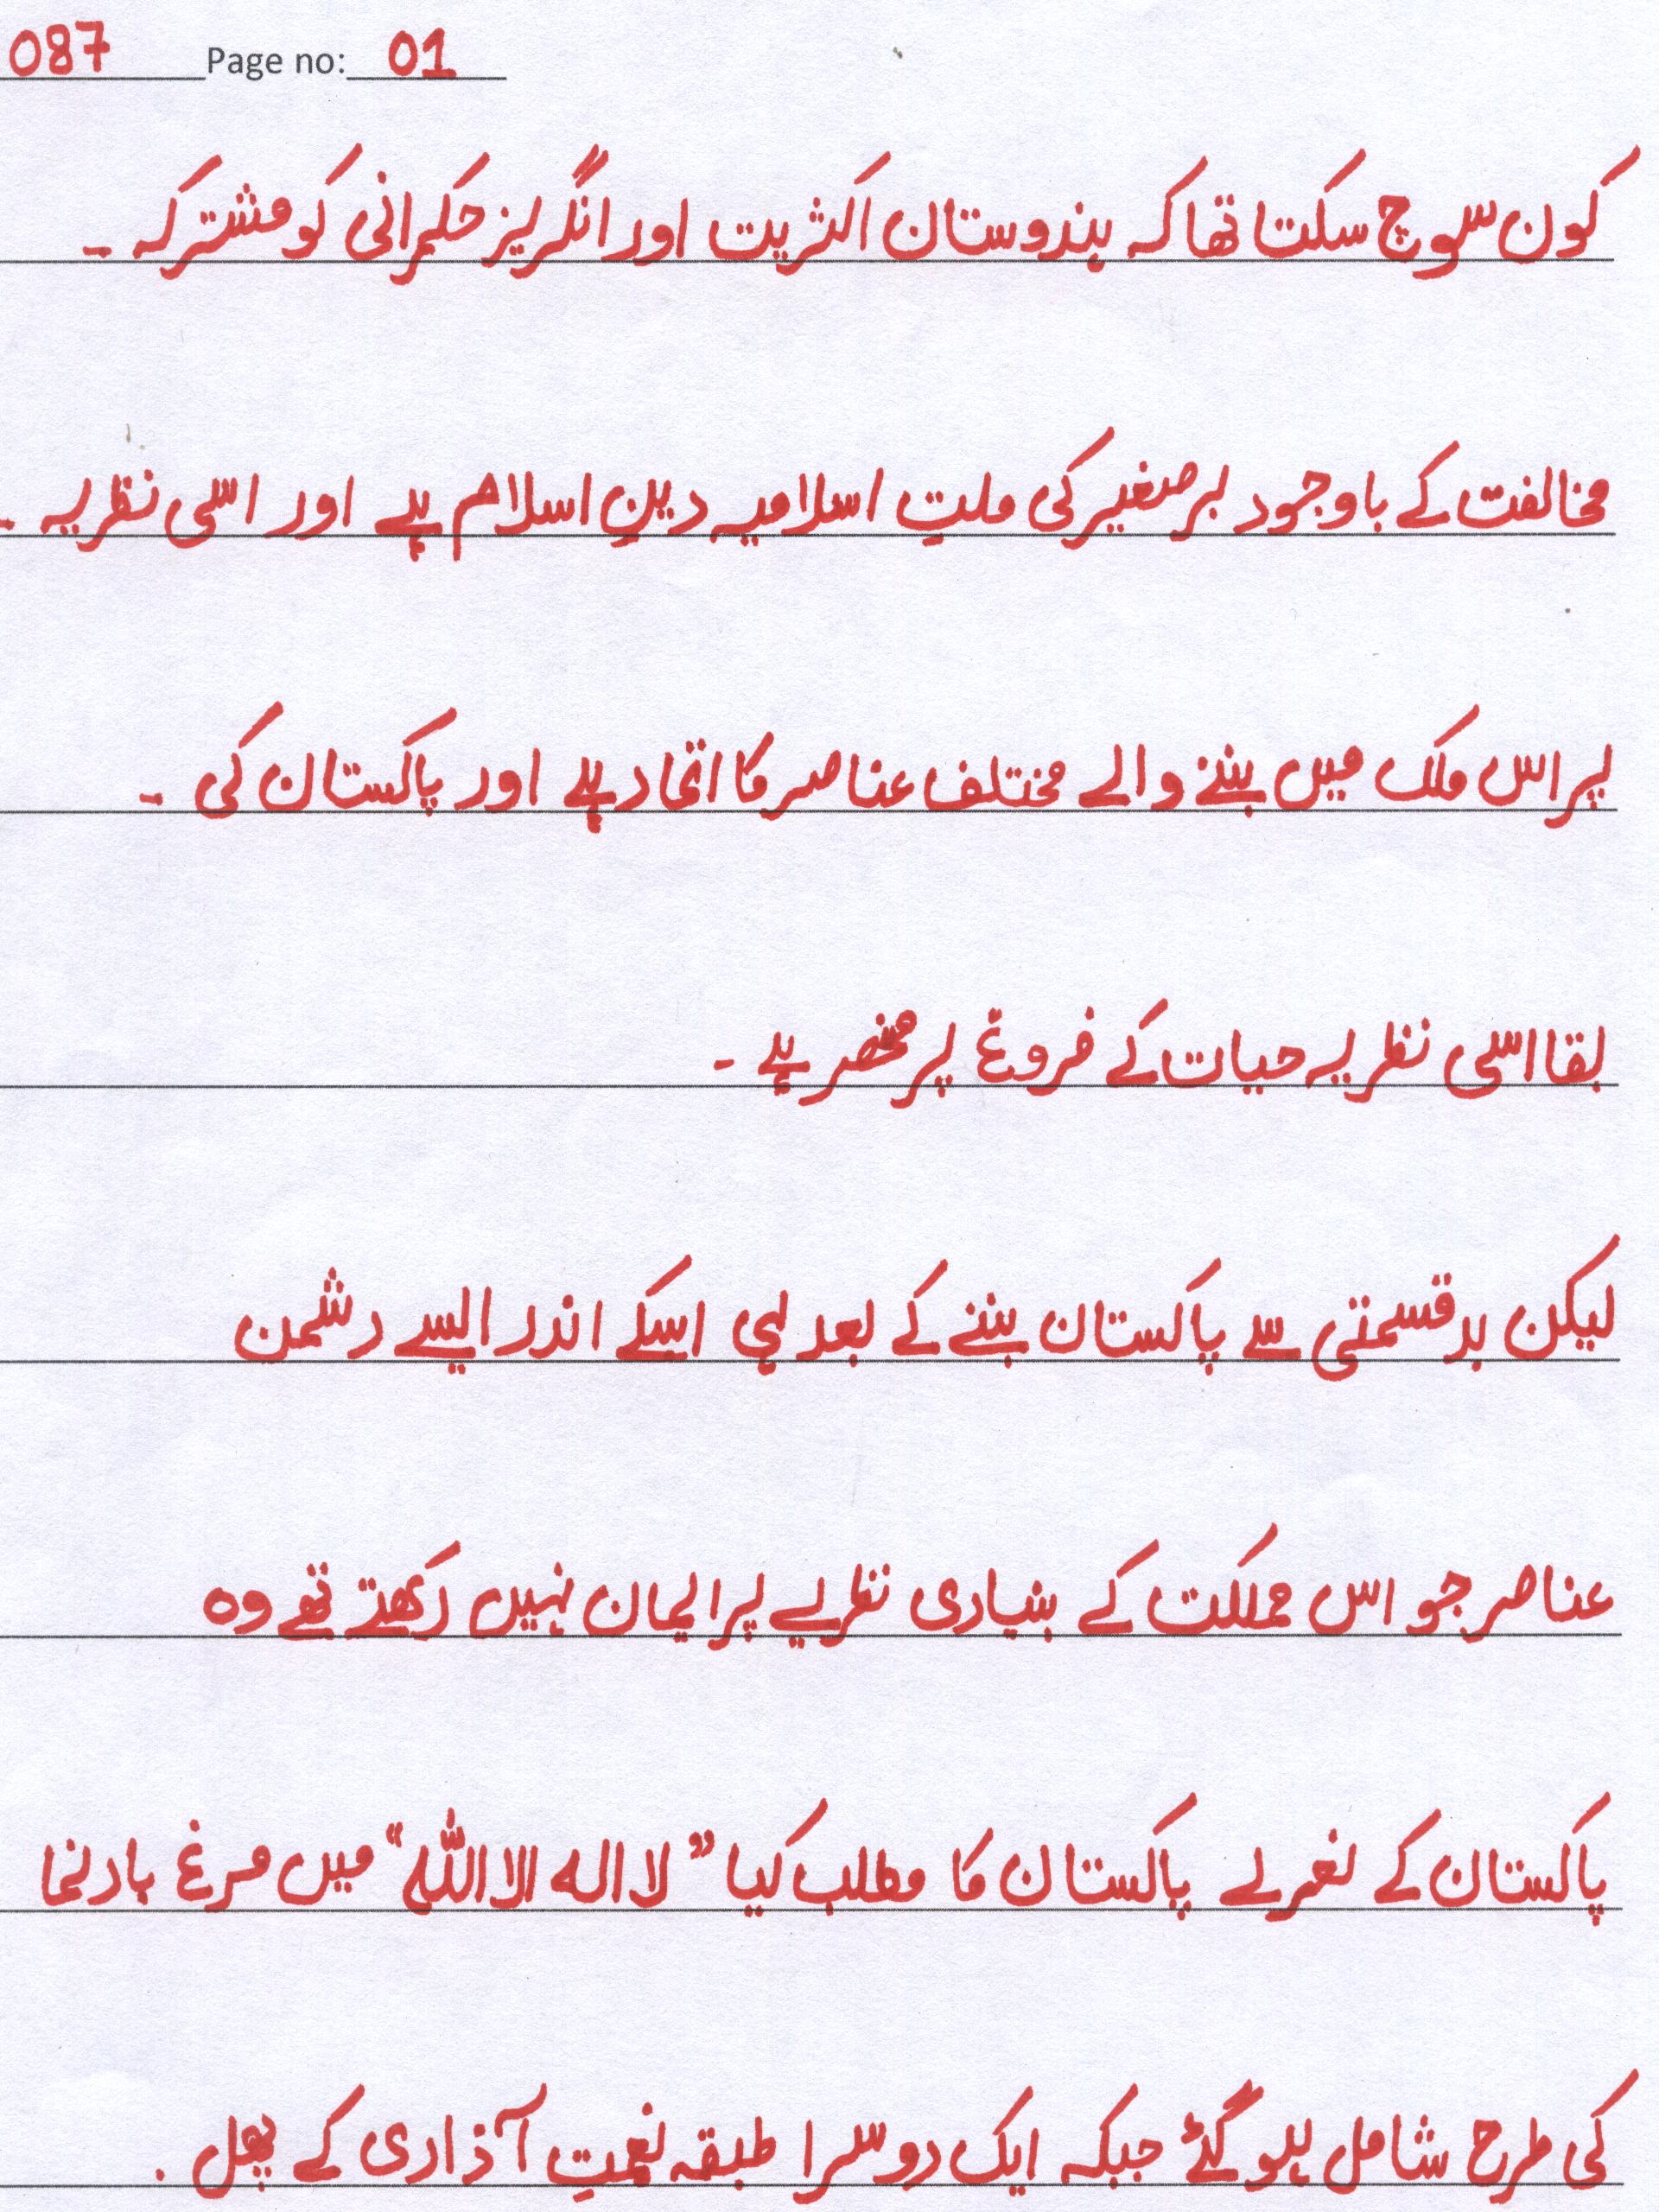 087 Page no: 01
کون سوچ سکتا تھا کہ ہندوستان اکثریت اور انگریز حکمرانی کو مشترکہ ۔
مخالفت کے باوجود برصغیر کی ملتِ اسلامیہ دینِ اسلام ہے اور اسی نظریہ ۔
پر اس ملک میں بننے والے مختلف عناصر کا اتحاد ہے اور پاکستان کی ۔
بقا اسی نظریہ حیات کے فروغ پر منحصر ہے ۔
لیکن بدقسمتی سے پاکستان بننے کے بعد ہی اسکے اندر ایسے دشمن
عناصر جو اس مملکت کے بنیادی نظریے پر ایمان نہیں رکھتے تھے وہ
پاکستان کے نعرے پاکستان کا مطلب کیا "لا الہ الا اللہ" میں مرغ بادنما
کی طرح شامل ہو گئے جبکہ ایک دوسرا طبقہ نعمتِ آذادی کے پھل .